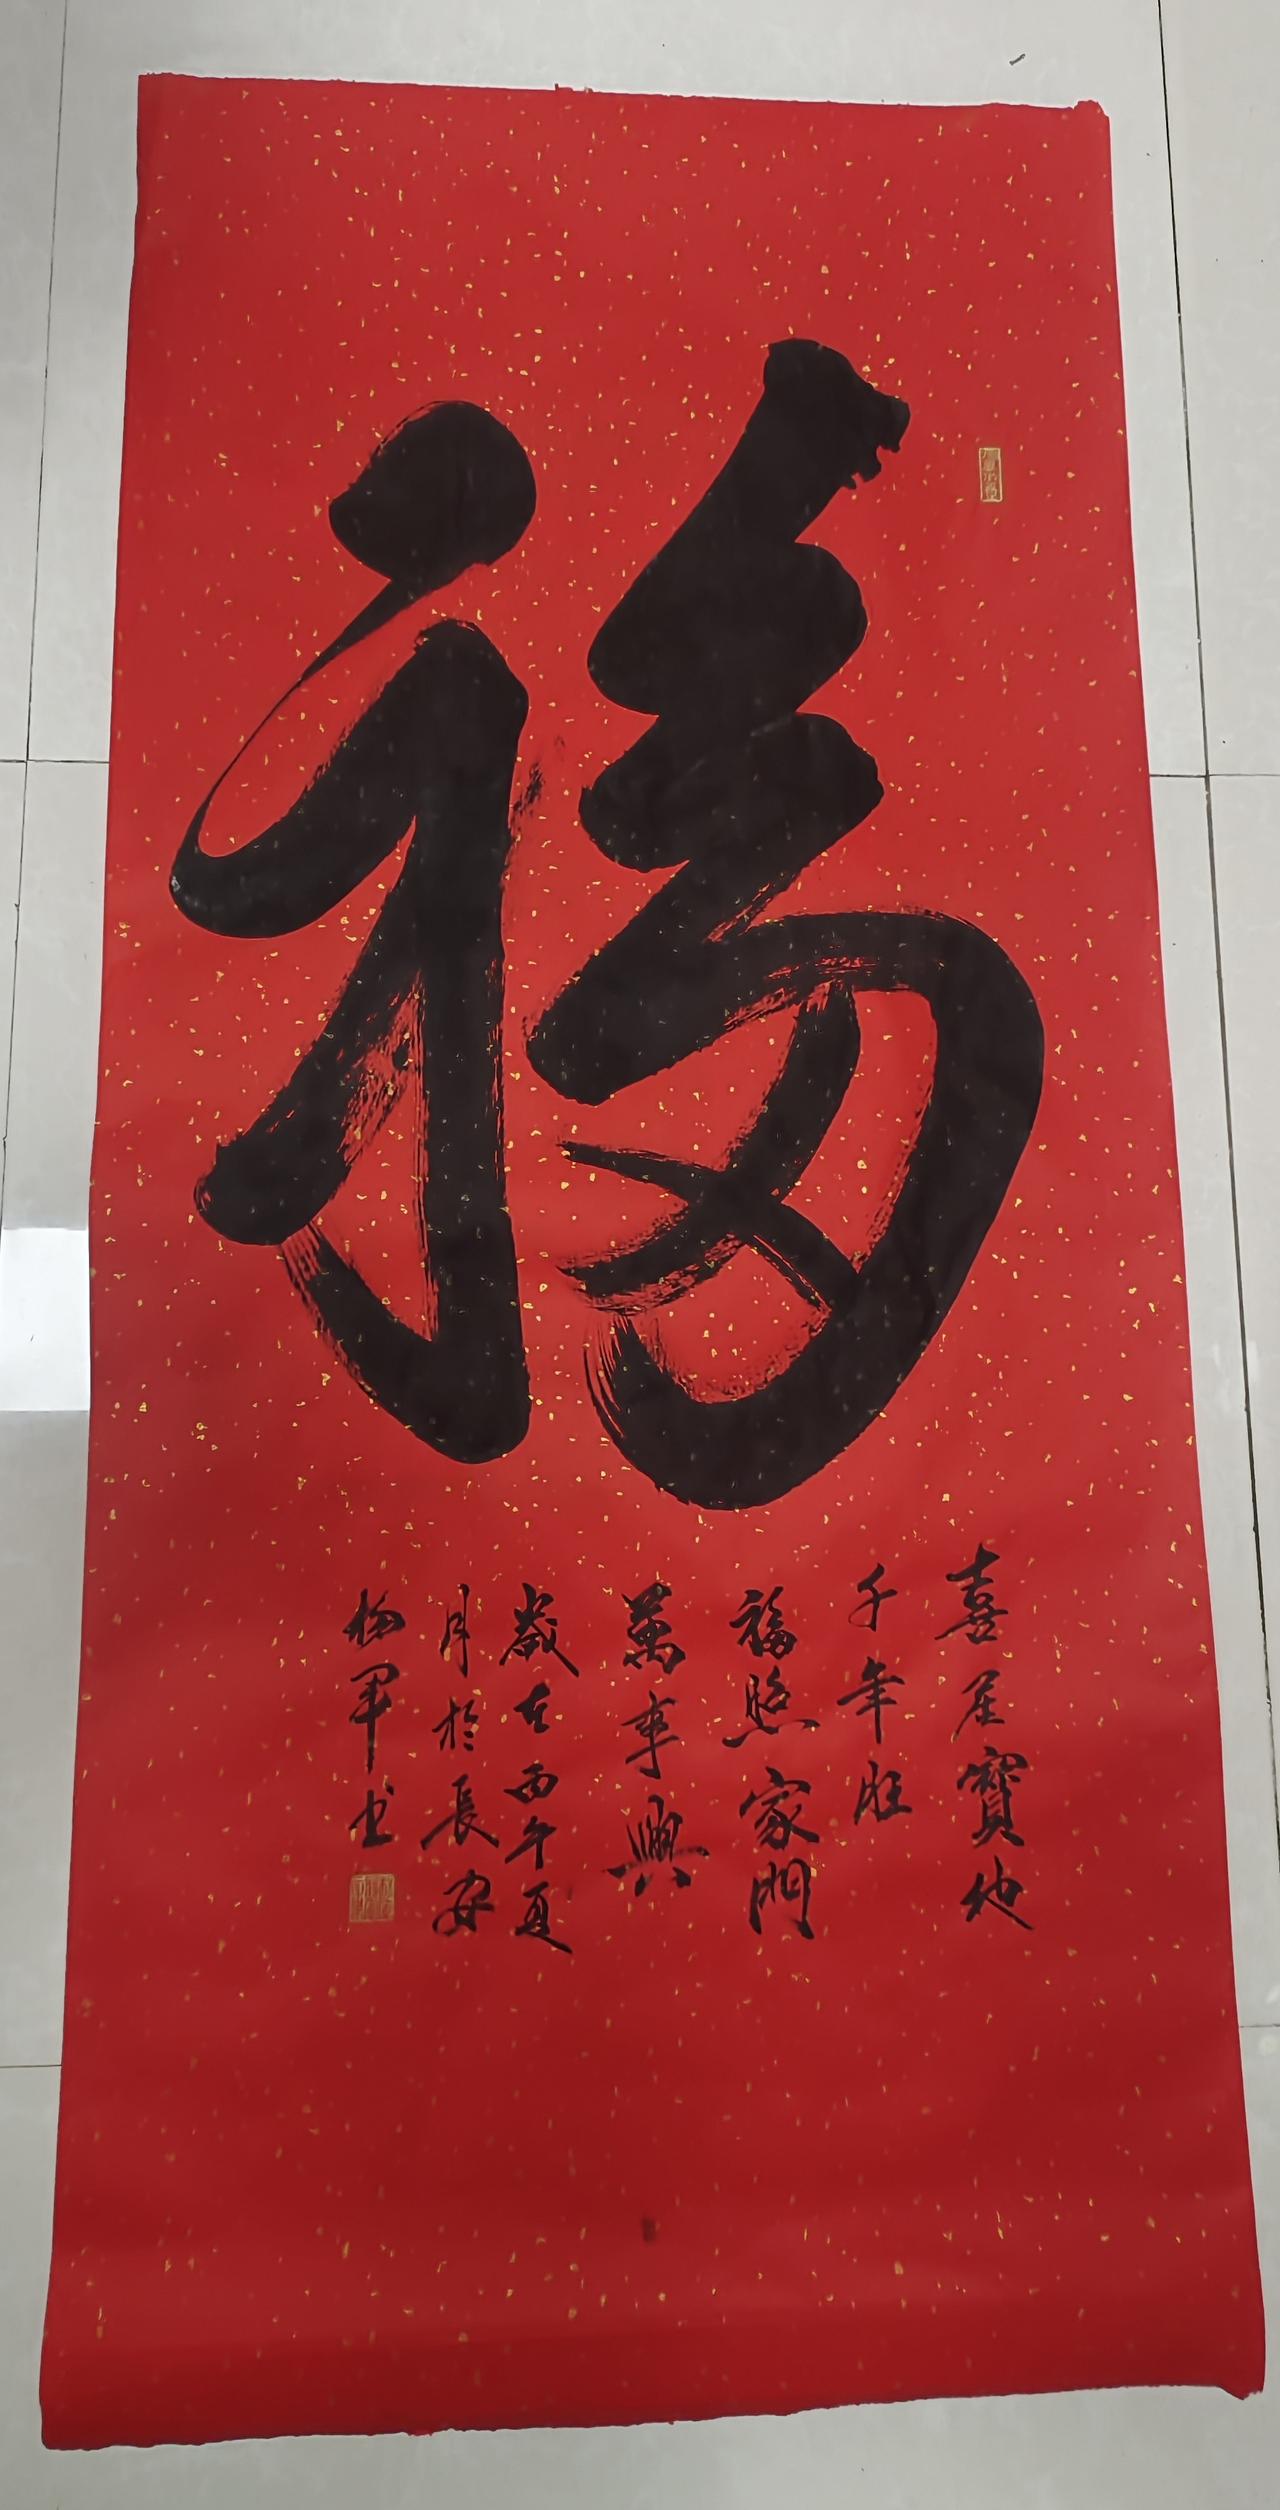 福
喜居寳地
千年旺
福照家門
萬事興
歲在丙午夏
月於長安
楊軍书